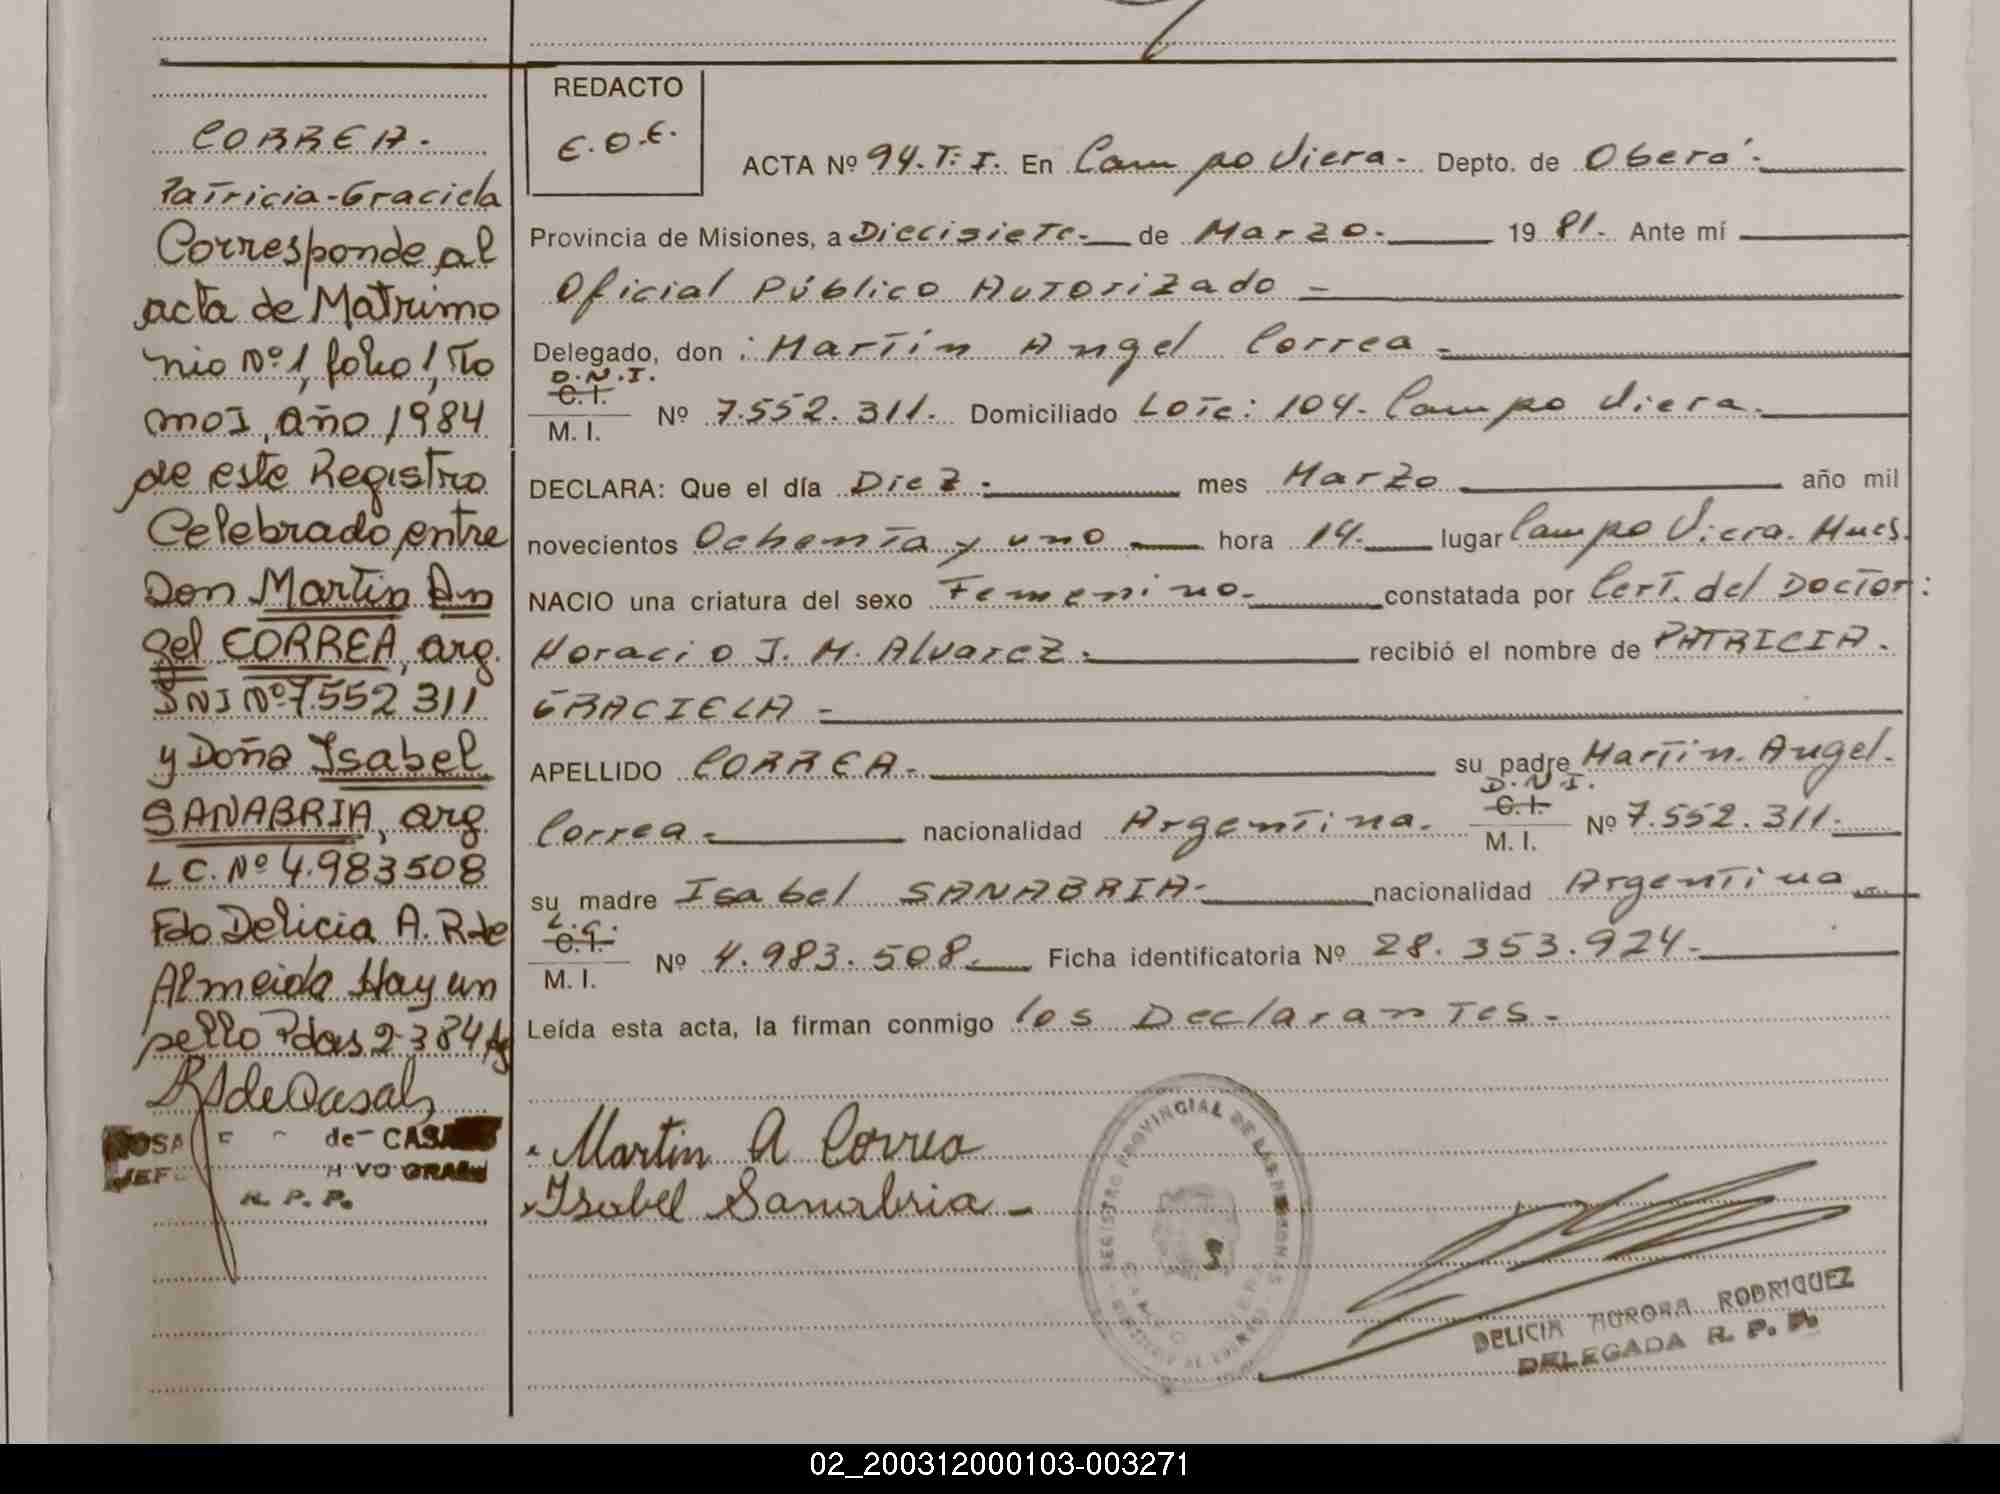 CORREA.
Patricia-Graciela
Corresponde al
acta de Matrimo
nio Nº 1, folio 1, To
mo I, año 1984
de este Registro
Celebrado entre
Don Martin An
gel CORREA, arg.
DNI Nº 7.552 311
y Doña Isabel
SANABRIA, arg
LC. Nº 4.983508
Fdo Delicia A. R de
Almeida Hay un
sello Pdas 2-3 84
RS de Casals
ROSA de CASA
JEF VO GRAL
R. P. P.
REDACTO
E.O.E.
ACTA Nº 94.T.I. En Campo Viera. Depto. de Oberá.
Provincia de Misiones, a Diecisiete. de Marzo. 19 81. Ante mí
Oficial Público Autorizado -
Delegado, don : Martín Angel Correa -
D.N.I.
C.I.
M. I.
Nº 7.552.311. Domiciliado Lote: 104. Campo Viera.
DECLARA: Que el día Diez. mes Marzo año mil
novecientos Ochenta y uno hora 14. lugar Campo Viera. Mnes.
NACIO una criatura del sexo Femenino. constatada por Cert. del Doctor:
Horacio J. M. Alvarez. recibió el nombre de PATRICIA.
GRACIELA -
APELLIDO CORREA. su padre Martín. Angel.
Correa. nacionalidad Argentina. D.N.I. C.I. M. I. Nº 7.552.311.
su madre Isabel SANABRIA. nacionalidad Argentina
L.C.
C.I.
M. I.
Nº 4.983.508. Ficha identificatoria Nº 28.353.924.
Leída esta acta, la firman conmigo los Declarantes.
Martin A Correa
Isabel Sanabria -
REGISTRO PROVINCIAL DE LAS PERSONAS
CAMPO VIERA
DELICIA AURORA RODRIGUEZ
DELEGADA R. P. P.
02_200312000103-003271